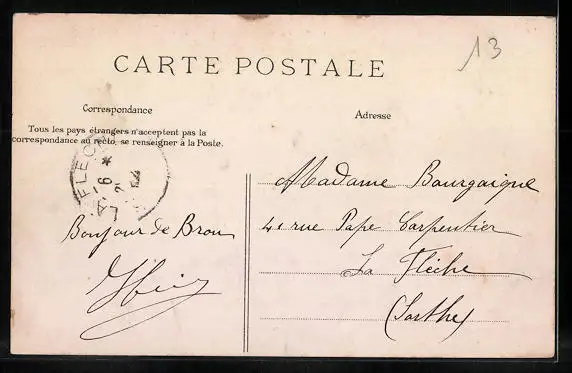 13
CARTE POSTALE
Correspondance
Tous les pays étrangers n'acceptent pas la
correspondance au recto, se renseigner à la Poste.
Adresse
LA FLECHE
16
Madame Bourgaigne
Bonjour de Brou
41 rue Pape Carpentier
La Flèche
(Sarthe)